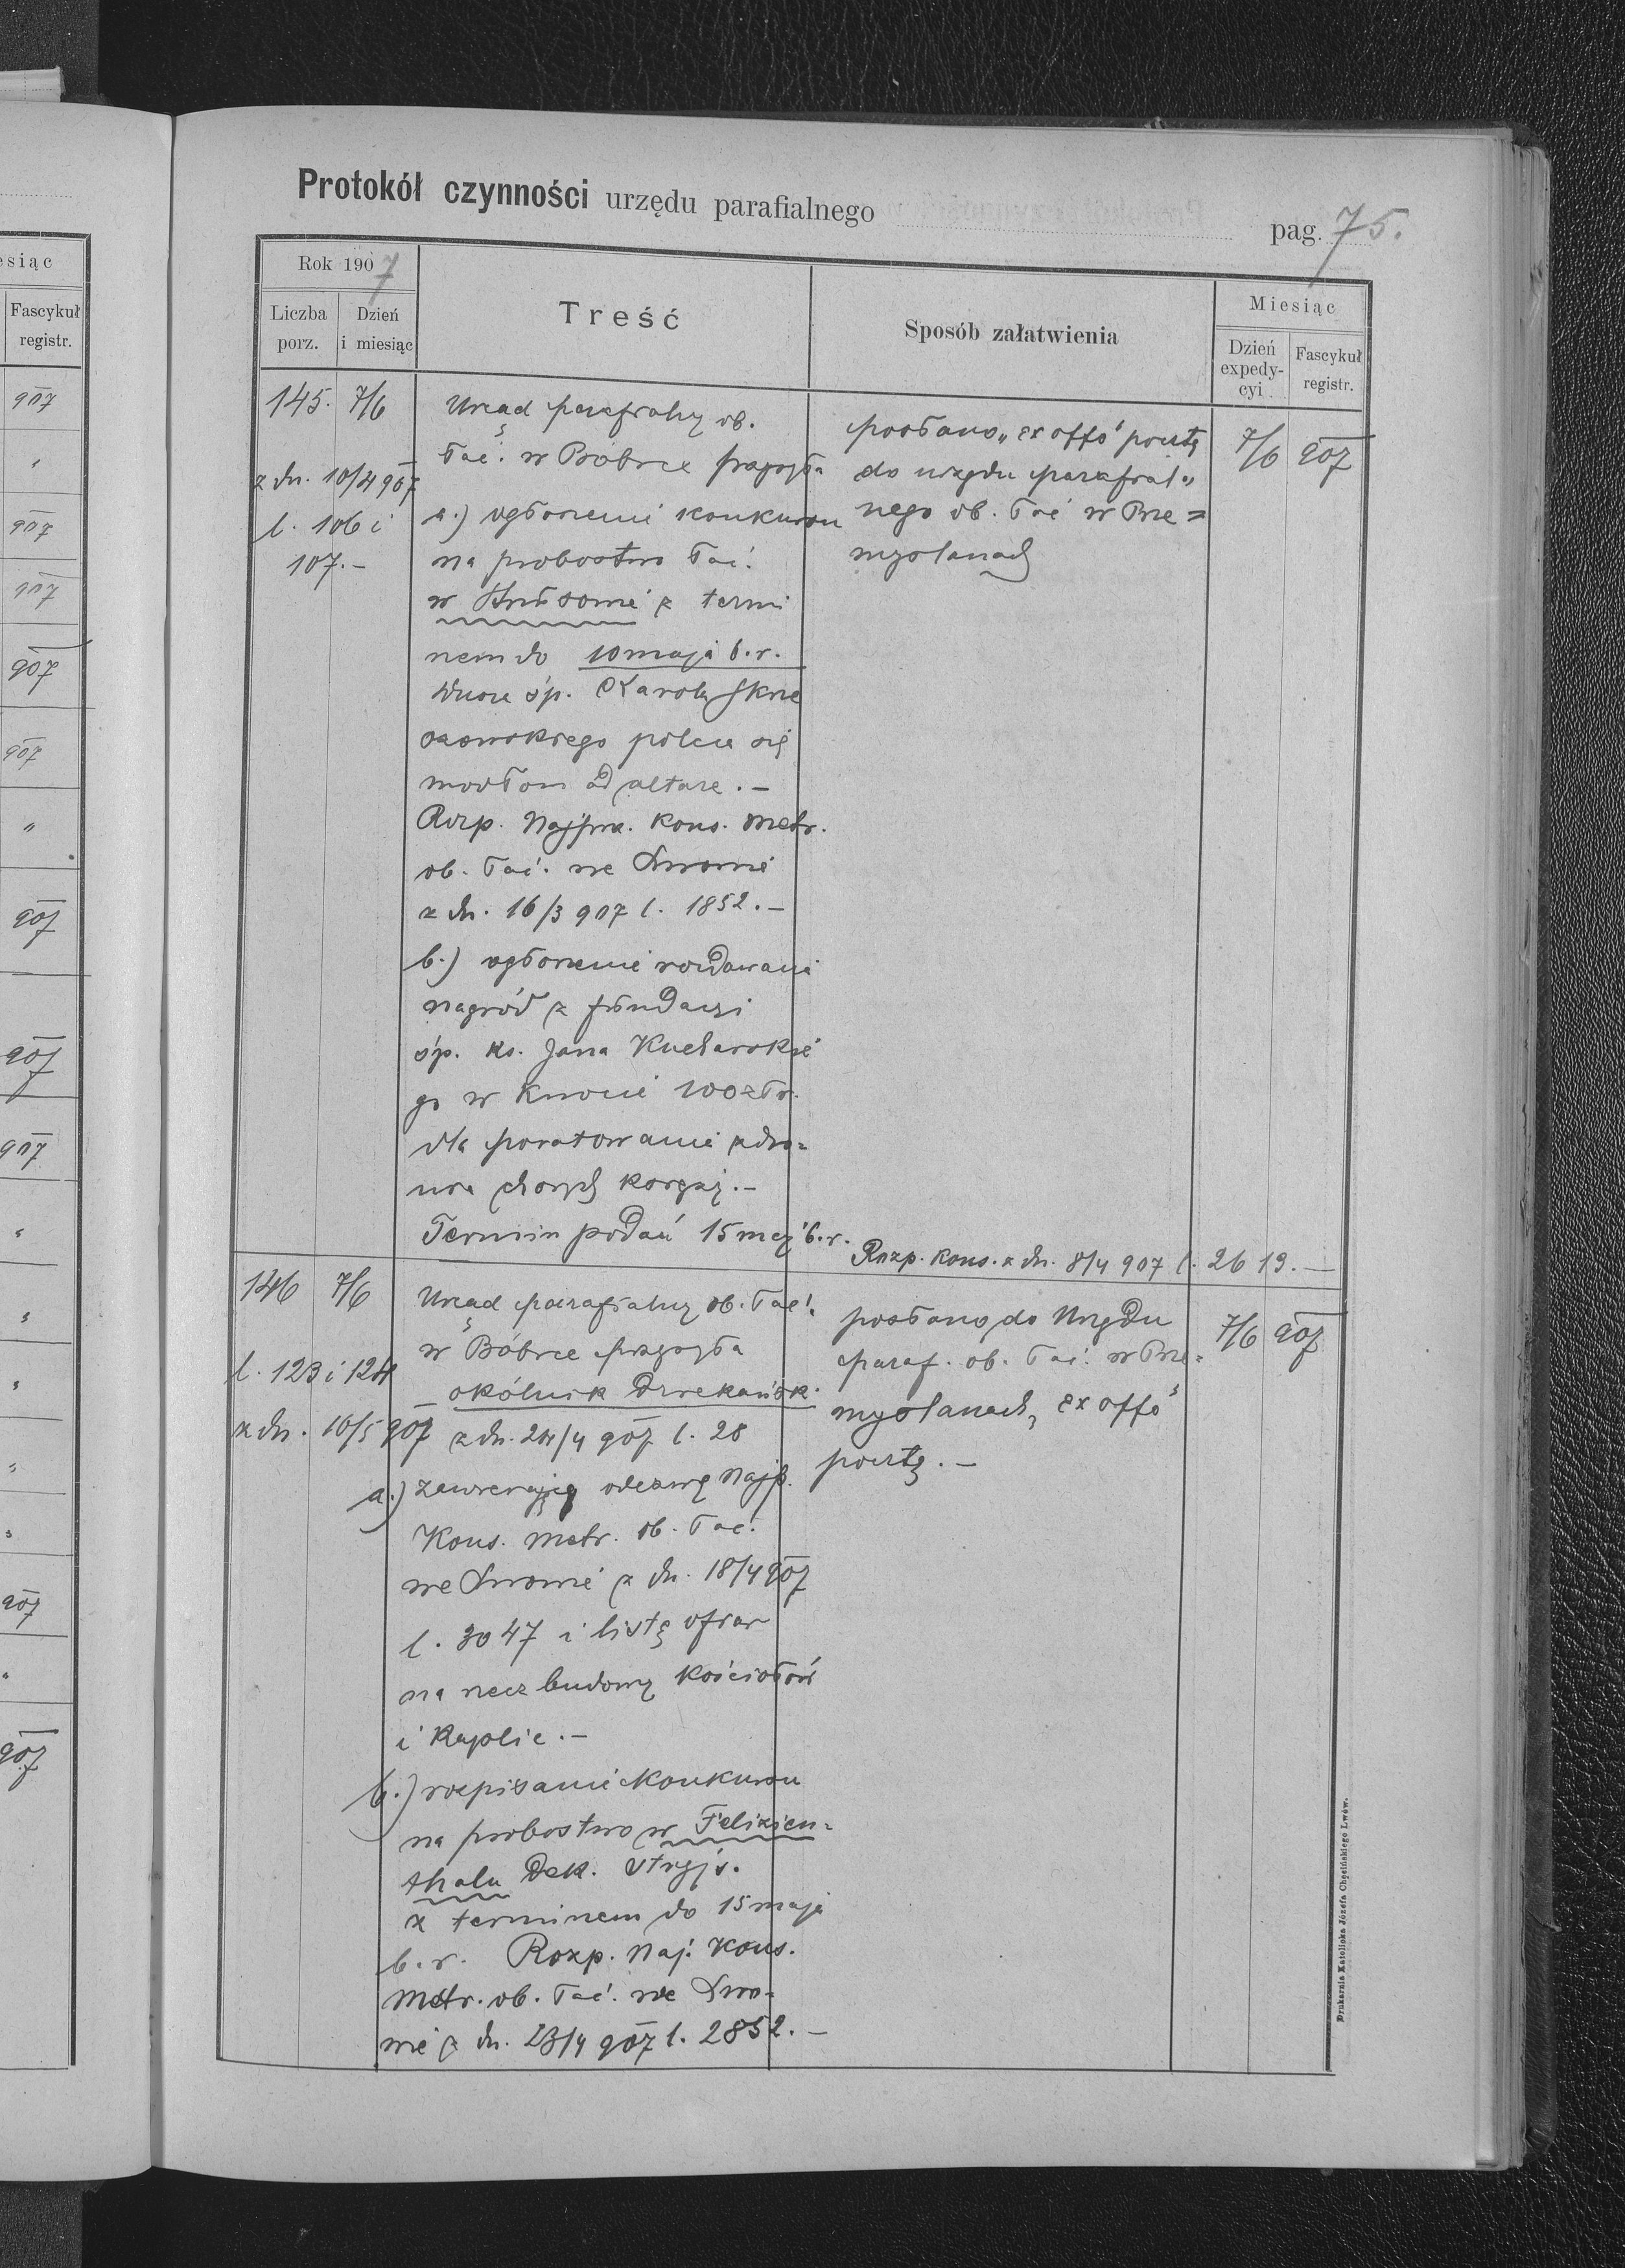 Protokół czynności urzędu parafialnego
pag. 75.
Rok 1907
Liczba porz.
Dzień i miesiąc
Treść
Sposób załatwienia
Miesiąc
Dzień expedycyi
Fascykuł registr.
145. 7/6
z dn. 10/4 907
l. 106 i
107.-
Urząd parafialny ob.
łać. w Bóbrce przysyła
a.) ogłoszenie konkursu
na probostwo łać.
w z termi
nem do 10 maja b.r.
Dusze śp. Karola Skrze
czewskiego poleca się
modłom ad altare.-
Rozp. Najprz. Kons. metr.
ob. łać. we Lwowie
z dn. 16/3 907 l. 1852.-
b.) ogłoszenie rozdawania
nagród z fundacyi
śp. ks. Jana Kucharskie
go w kwocie 100 złr.
dla poratowania zdro=
wia chorych księży.-
Termin podań 15 maj b.r.
Rozp. kons. z dn. 8/4 907 l. 2619.-
posłano „ex offo" pocztą
do urzędu parafial=
nego ob. łać w Prze=
myślanach
7/6 907
146 7/6
l. 123 i 124
z dn. 10/5 907
Urząd parafialny ob. łać.
w Bóbrce przysyła
okólnik Dziekańsk.
z dn. 24/4 907 l. 28
a.) zawierający odezwę Najp.
Kons. metr. ob. łac.
we Lwowie z dn. 18/4 907
l. 3047 i listę ofiar
na rzecz budowy kościołów
i kaplic.-
b.) rozpisanie konkursu
na probostwo w Felizien=
thalu Dek. Stryjs.
z terminem do 15 maja
b.r. Rozp. Naj. Kons.
Metr. ob. łać. we Lwo=
wie z dn. 23/4 907 l. 2852.-
posłano do Urzędu
paraf. ob. łać. w Prze=
myślanach „ex offo"
pocztą.-
7/6 907
Drukarnia Katolicka Józefa Chęcińskiego Lwów.
esiąc
Fascykuł
registr.
907
"
907
907
907
907
"
907
907
907
"
"
"
"
"
907
"
907